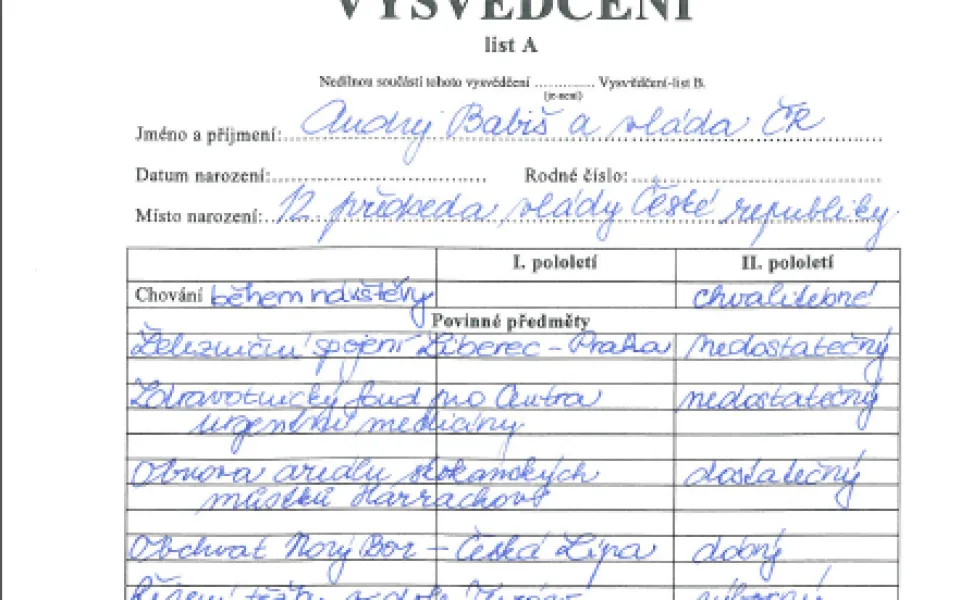 VYSVĚDČENÍ
list A
Nedílnou součástí tohoto vysvědčení .............. Vysvědčení-list B.
(je-není)
Jméno a příjmení: Andrej Babiš a vláda ČR
Datum narození: Rodné číslo:
Místo narození: 12. předseda vlády České republiky
I. pololetí II. pololetí
Chování během návštěvy chvalitebné
Povinné předměty
Železniční spojení Liberec – Praha nedostatečný
Zdravotnický fond pro Centra nedostatečný
urgentní medicíny
Obnova areálu skokanských dostatečný
můstků Harrachově
Obchvat Nový Bor – Česká Lípa dobrý
Řešení těžby v dole Turów výborný